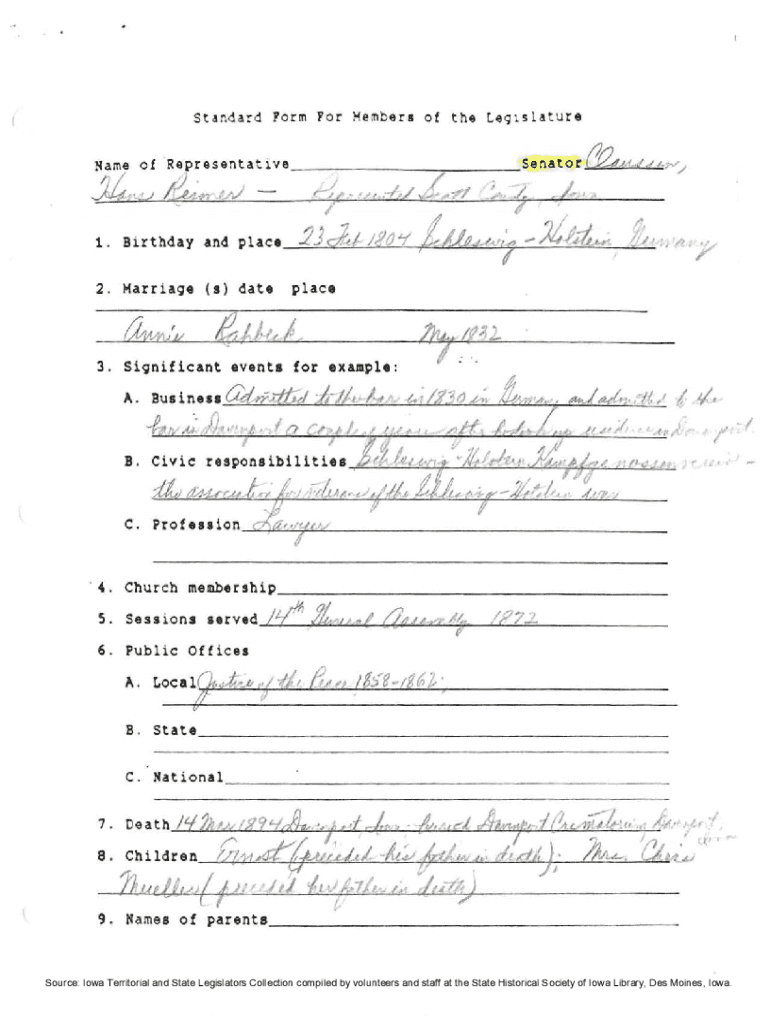 Standard Form For Members of the Legislature
Name of Representative Senator Claussen,
Hans Reimer - Represented Scott County, Iowa
1. Birthday and place 23 Feb 1804 Schleswig-Holstein, Germany
2. Marriage (s) date place
Annie Rahbeck May 1832
3. Significant events for example:
A. Business Admitted to the bar in 1830 in Germany and admitted to the
bar in Davenport a couple years after residence in Davenport.
B. Civic responsibilities Schleswig-Holstein Kampfgenossenverein -
the association for veterans of the Schleswig-Holstein war
C. Profession Lawyer
4. Church membership
5. Sessions served 14th General Assembly 1872
6. Public Offices
A. Local Justice of the Peace 1858-1862;
B. State
C. National
7. Death 14 Mar 1894 Davenport, Iowa buried Davenport Crematorium, Davenport, Iowa
8. Children Ernst (preceded his father in death); Mrs. Chris
Mueller (preceded her father in death)
9. Names of parents
Source: Iowa Territorial and State Legislators Collection compiled by volunteers and staff at the State Historical Society of Iowa Library, Des Moines, Iowa.